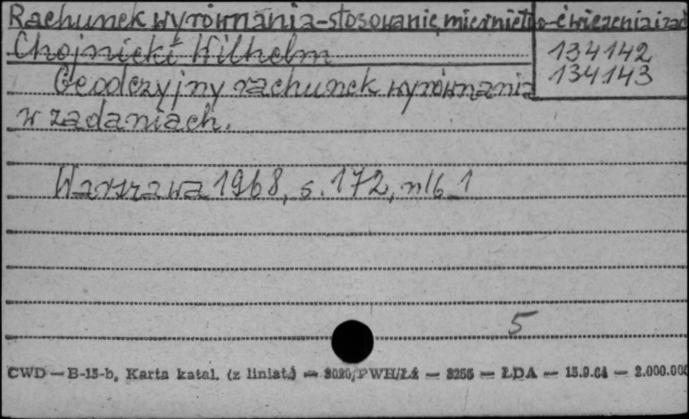 Rachunek wyrównania-stosowanie, miernictwo-ćwiczenia i zad
Chojnicki Wilhelm
134142
134143
Geodezyjny rachunek wyrównania
w zadaniach.
Warszawa 1968, s. 172, nlb 1
5
CWD — B-15-b, Karta katal. (z liniatą — 3020/PWH/Łż — 3255 — ŁDA — 15.9.64 — 2.000.000